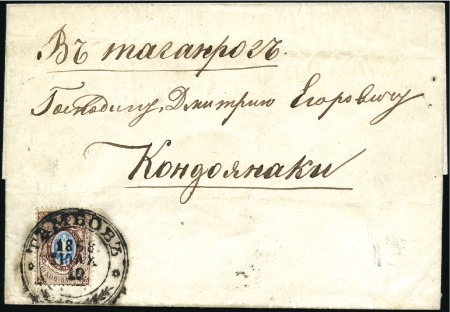 Въ таганрогъ.
Господину, Дмитрию Егоровичу
Кондоянаки
ТАМБОВЪ
18
10